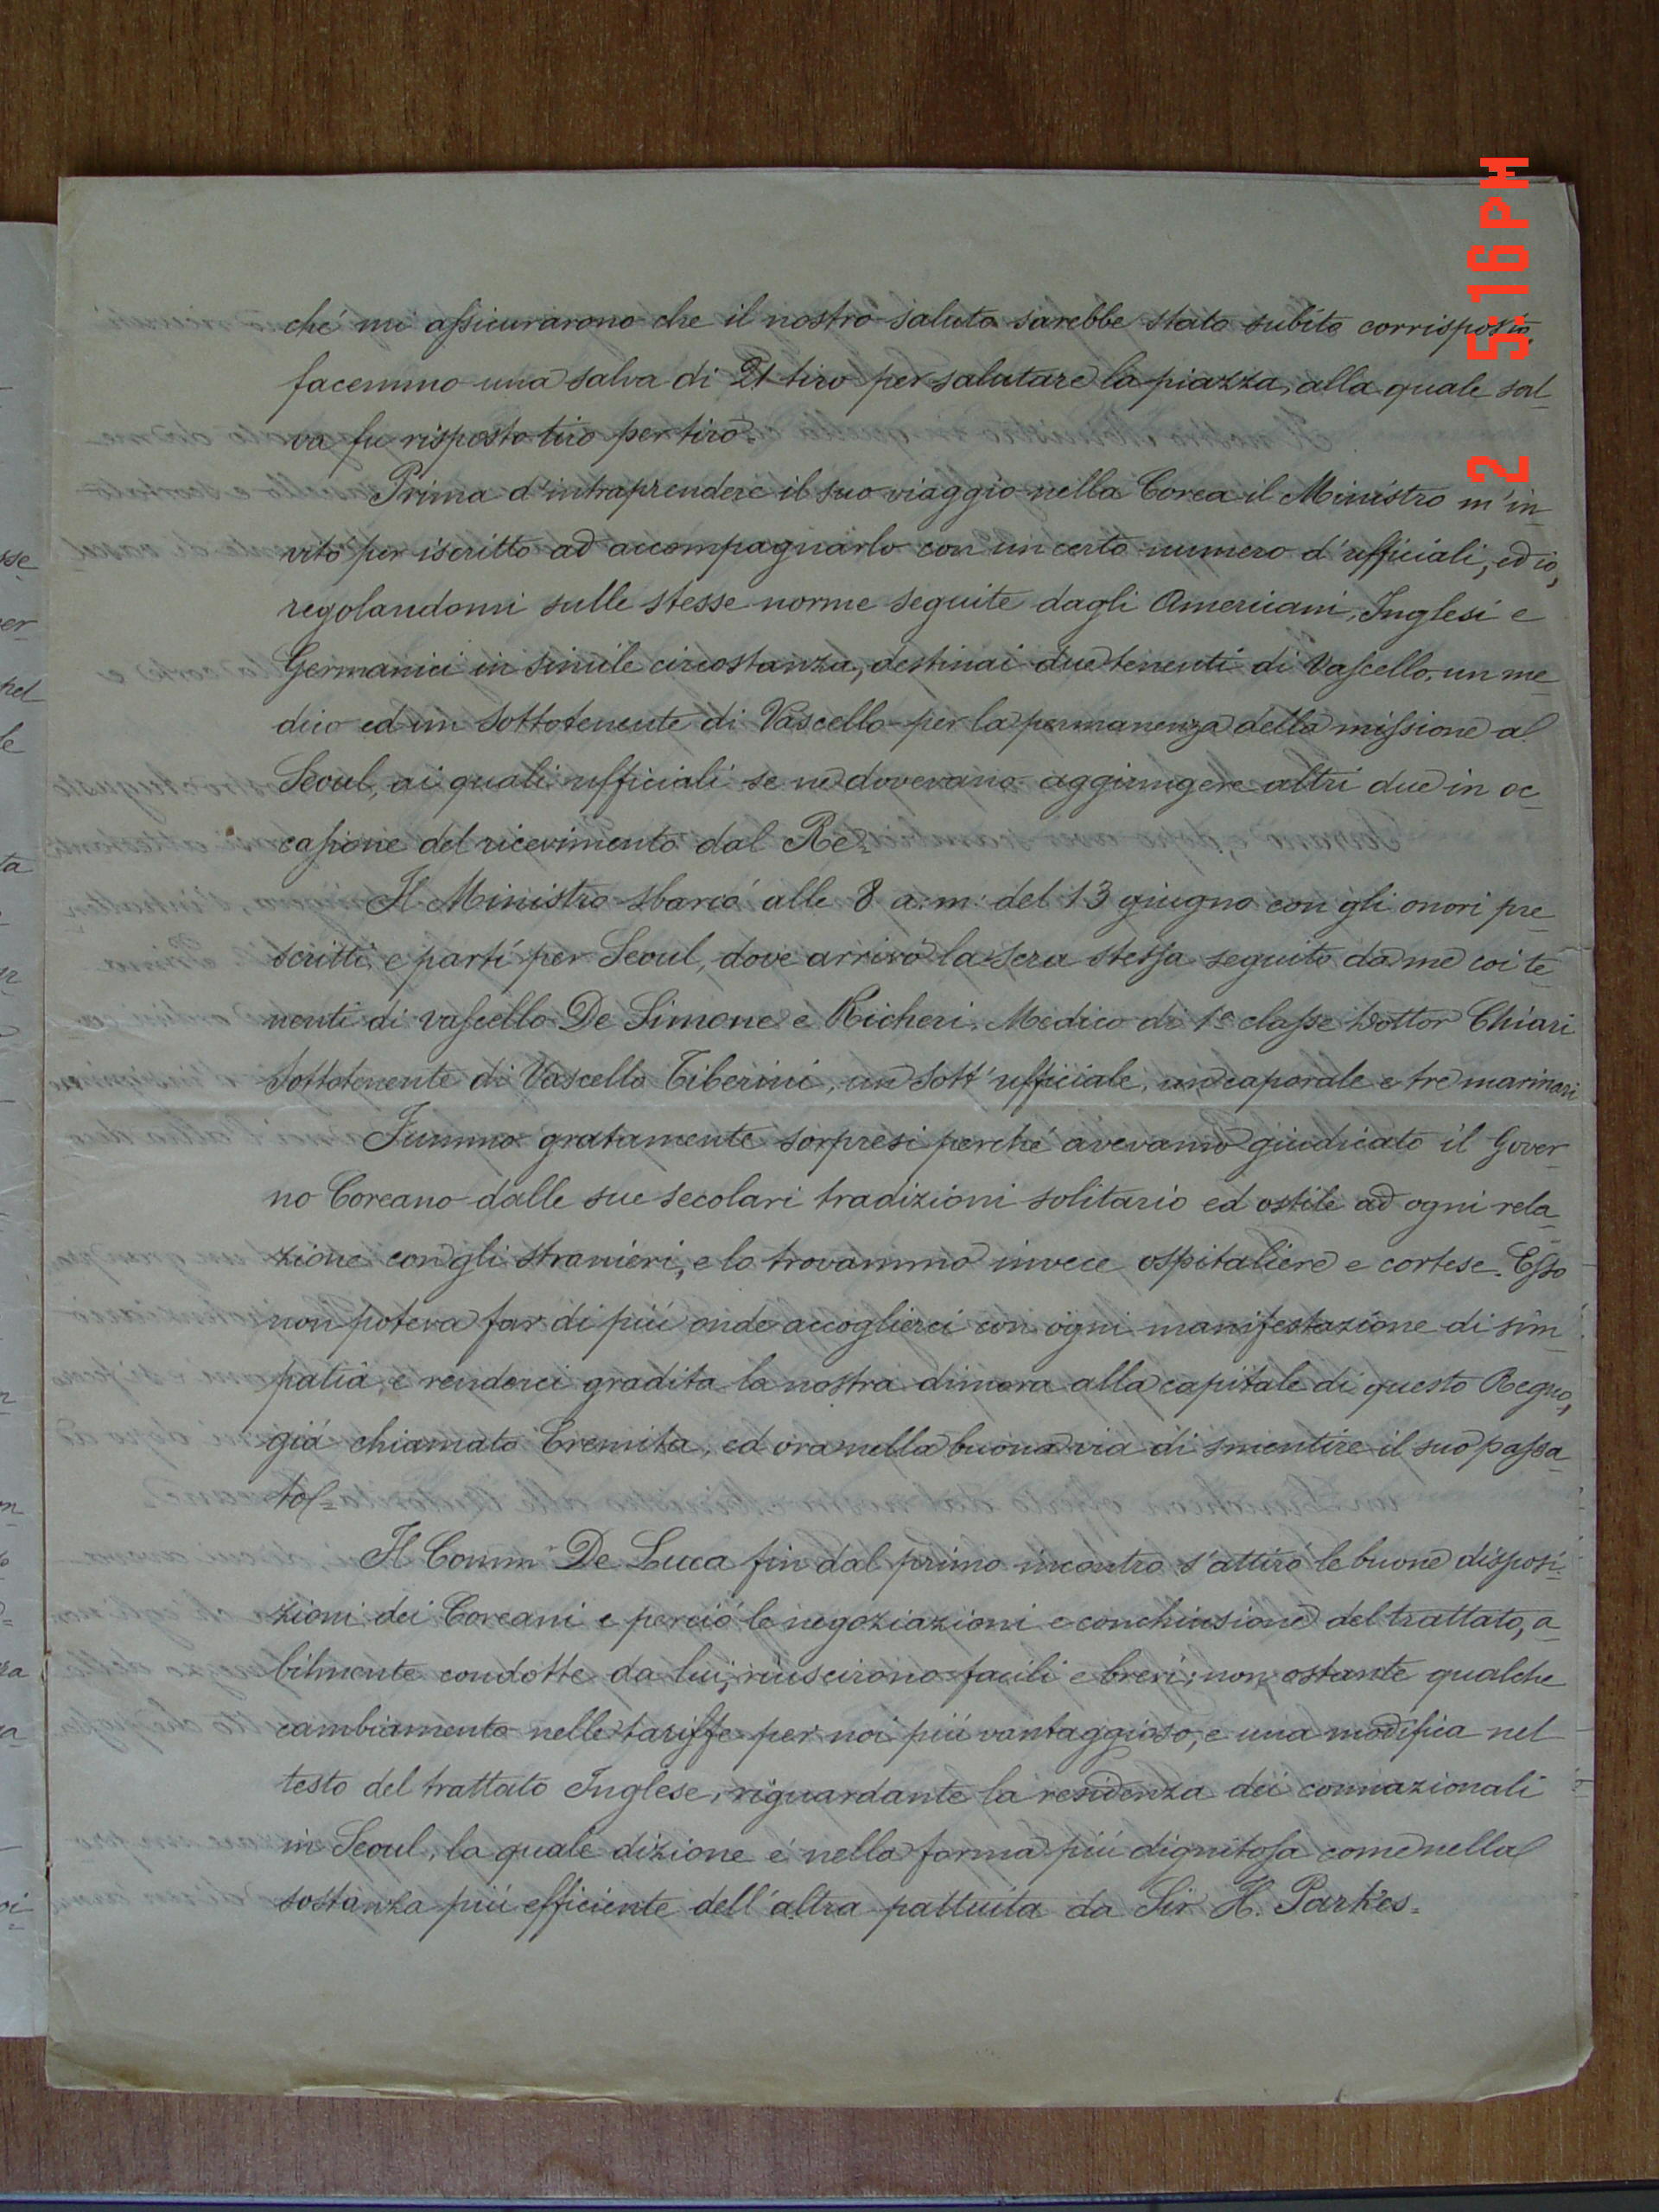 ché mi assicurarono che il nostro saluto sarebbe stato subito corrisposto,
facemmo una salva di 21 tiro per salutare la piazza, alla quale sal-
va fu risposto tiro per tiro.
Prima d'intraprendere il suo viaggio nella Corea il Ministro m'in-
vitò per iscritto ad accompagnarlo con un certo numero d'ufficiali, ed io,
regolandomi sulle stesse norme seguite dagli Americani, Inglesi e
Germanici in simile circostanza, destinai due tenenti di Vascello, un me-
dico ed un Sottotenente di Vascello per la permanenza della missione al
Seoul, ai quali ufficiali se ne dovevano aggiungere altri due in oc-
casione del ricevimento dal Re.
Il Ministro sbarcó alle 8 a.m. del 13 giugno con gli onori pre-
scritti, e partí per Seoul, dove arrivó la sera stessa seguito da me coi te-
nenti di vascello De Simone e Richeri, Medico di 1ª classe Dottor Chiari
Sottotenente di Vascello Tiberini, un Sott'ufficiale, un caporale e tre marinari
Fummo gratamente sorpresi perché avevamo giudicato il Gover-
no Coreano dalle sue secolari tradizioni solitario ed ostile ad ogni rela-
zione con gli stranieri, e lo trovammo invece ospitaliere e cortese. Esso
non poteva far di piú onde accoglierci con ogni manifestazione di sim-
patia, e renderci gradita la nostra dimora alla capitale di questo Regno,
giá chiamato Eremita, ed ora nella buona via di smentire il suo passa-
to.
Il Comm. De Luca fin dal primo incontro s'attiró le buone disposi-
zioni dei Coreani e perció le negoziazioni e conchiusione del trattato, a-
bilmente condotte da lui, riuscirono facili e brevi; non ostante qualche
cambiamento nelle tariffe per noi piú vantaggioso, e una modifica nel
testo del trattato Inglese, riguardante la residenza dei connazionali
in Seoul, la quale dizione é nella forma piú dignitosa come nella
sostanza piú efficiente dell'altra pattuita da Sir H. Parkes.
2 5:16PM